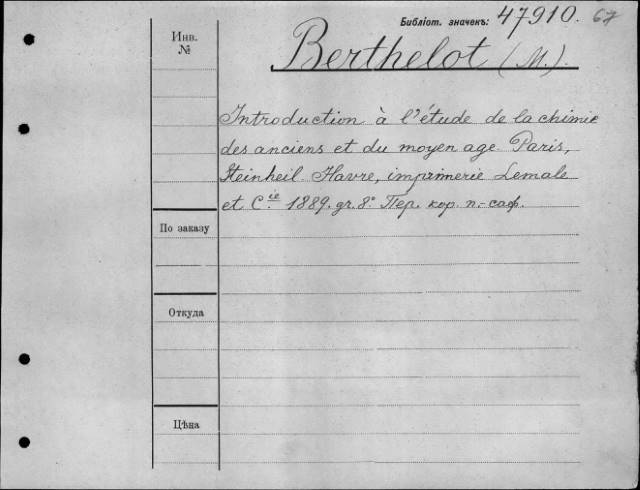 Библіот. значекъ: 47910. 67
Инв. №
Berthelot (M.).
Introduction à l'étude de la chimie
des anciens et du moyen age Paris,
Steinheil Havre, imprimerie Lemale
et Cie 1889. gr. 8° Пер. кор. п.-саф.
По заказу
Откуда
Цѣна